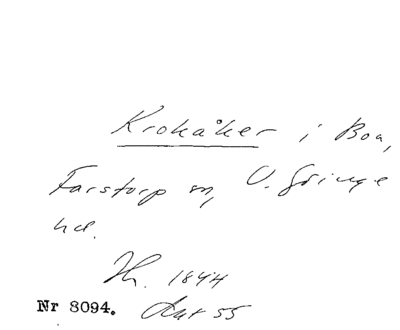 Krokåker i Boa,
Farstorp sn, V. Göinge
hd.
Hr. 1844
Nr 8094. Akt 55